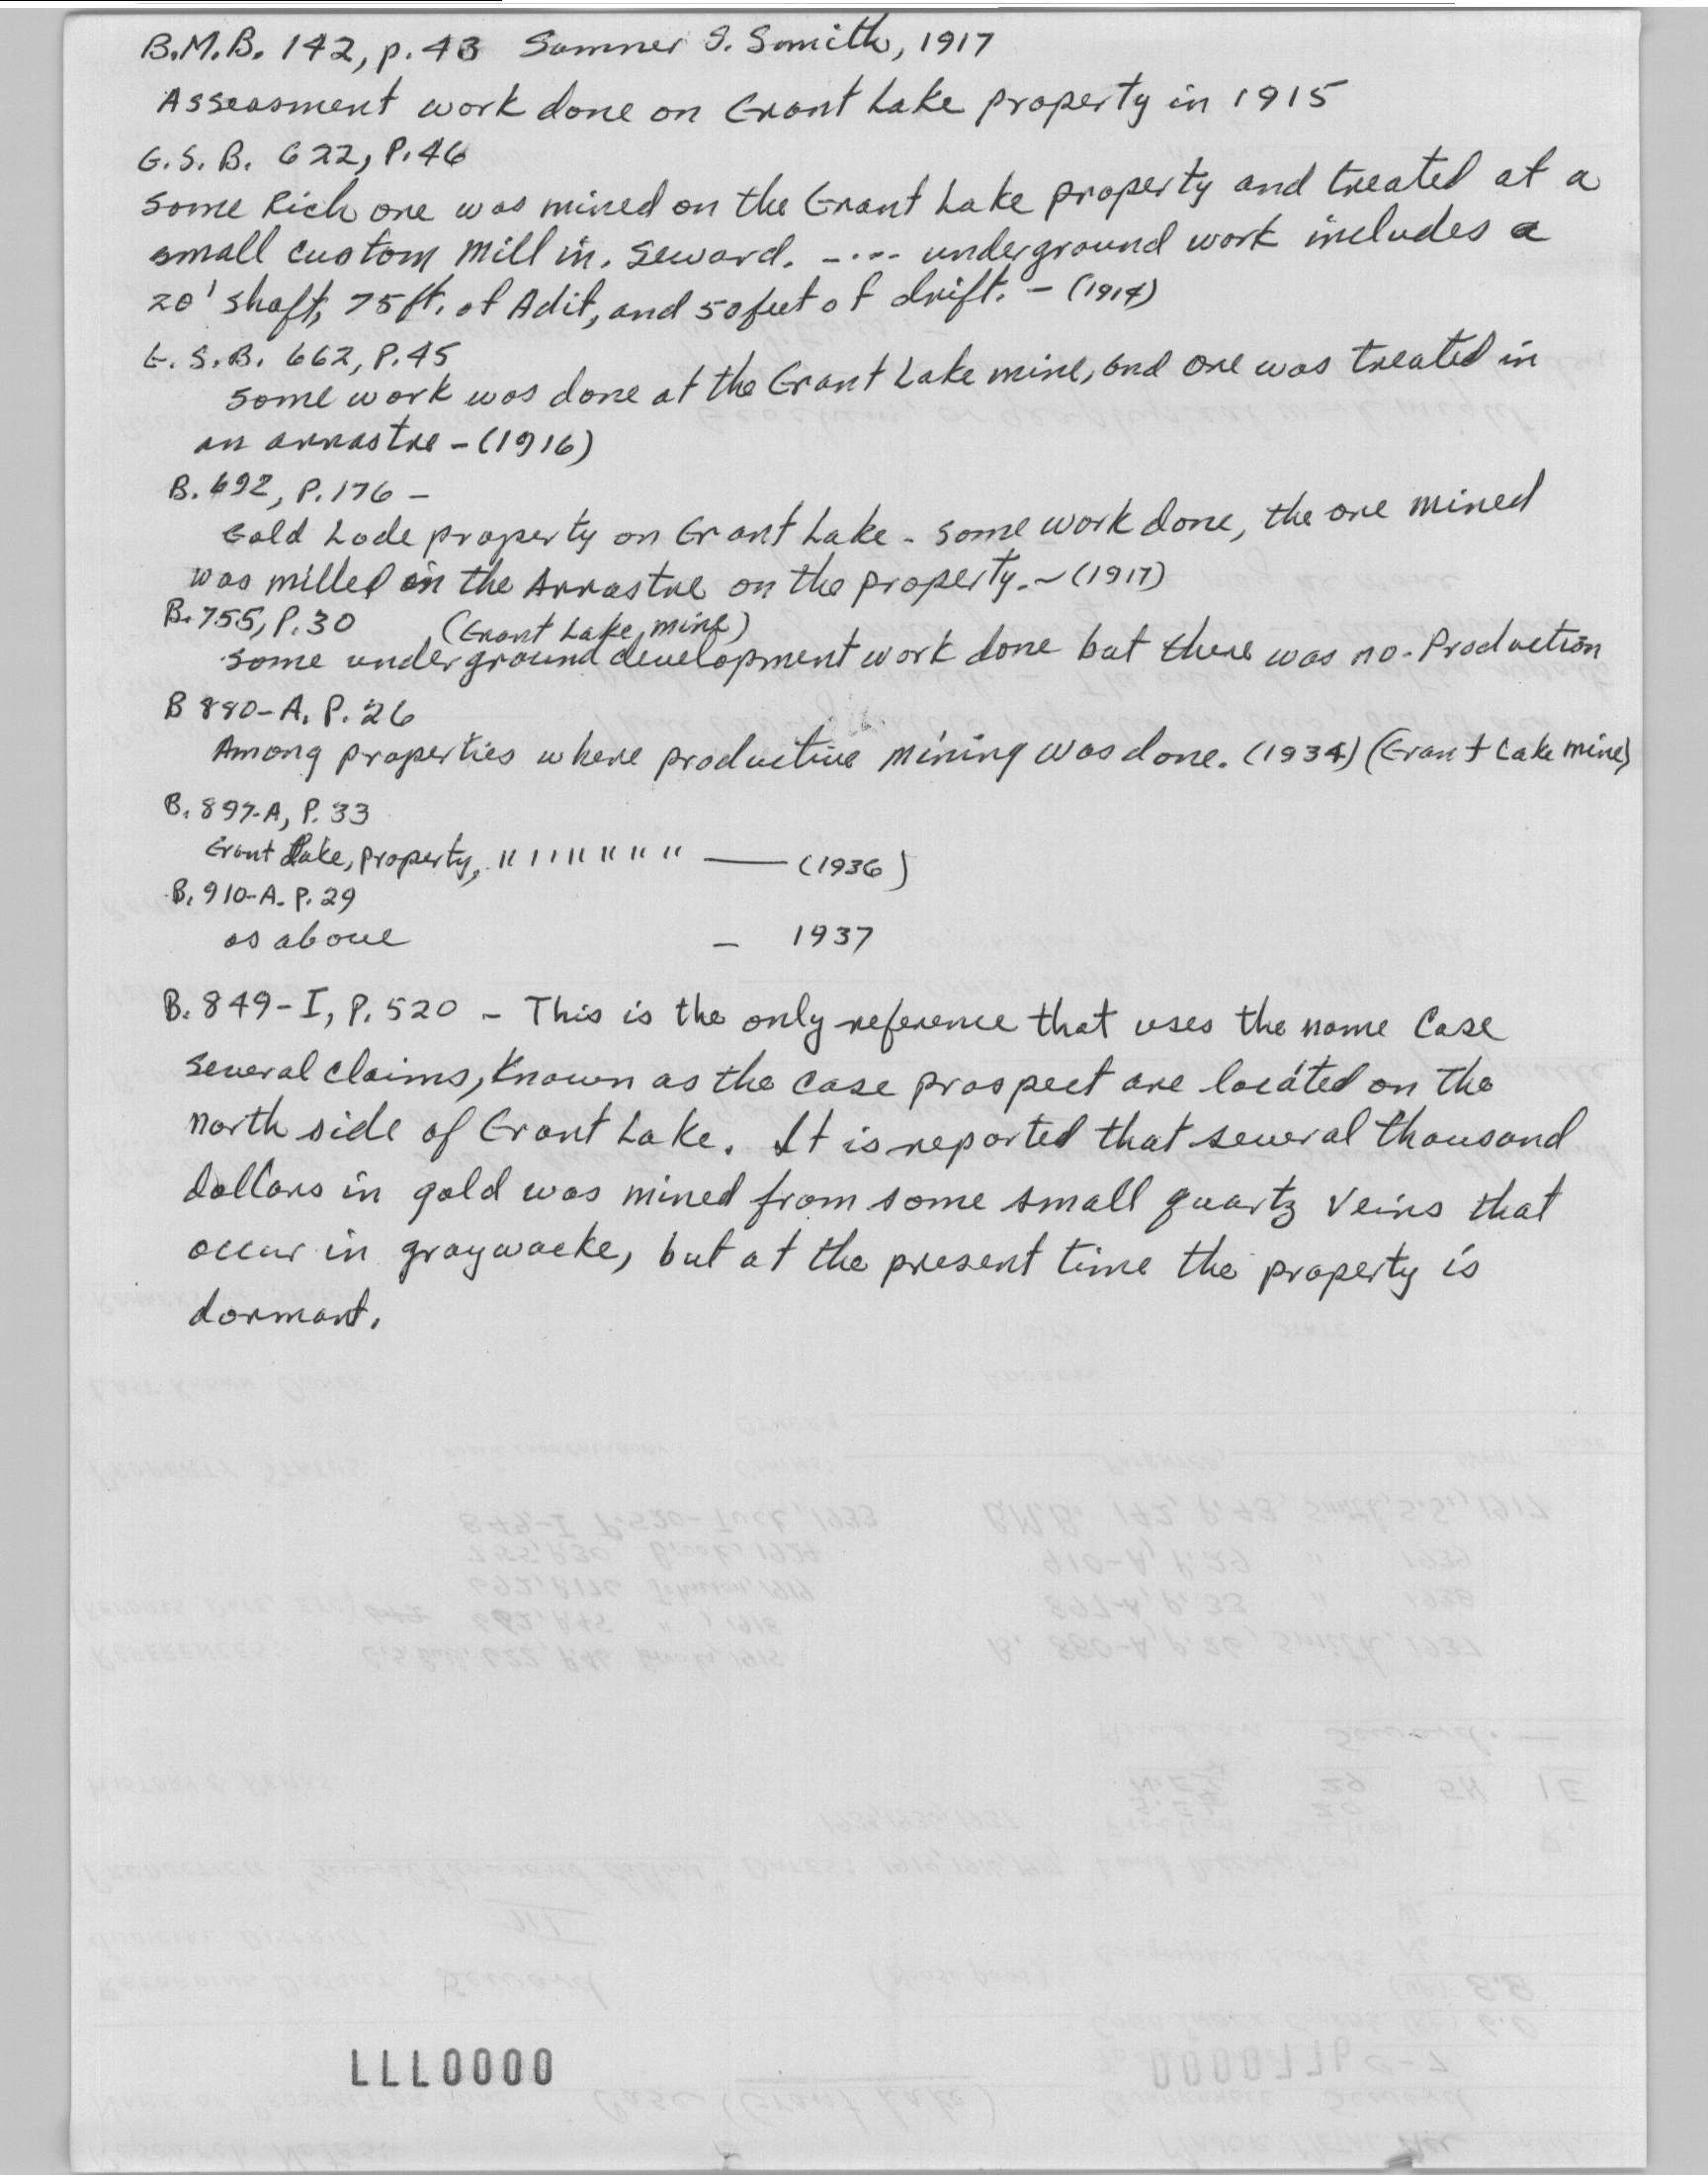 B.M.B. 142, p. 43 Sumner S. Smith, 1917
Assessment work done on Grant Lake property in 1915
G.S.B. 622, P. 46
Some Rich ore was mined on the Grant Lake property and treated at a
small custom mill in. Seward. -... underground work includes a
20' shaft, 75 ft. of Adit, and 50 feet of drift. - (1914)
G.S.B. 662, P. 45
Some work was done at the Grant Lake mine, and ore was treated in
an arrastre - (1916)
B. 692, P. 176 -
Gold Lode property on Grant Lake - some work done, the ore mined
was milled in the Arrastre on the property. - (1917)
B. 755, P. 30 (Grant Lake, mine)
some underground development work done but there was no. Production
B 880-A, P. 26
Among properties where productive mining was done. (1934) (Grant Lake mine)
B. 897-A, P. 33
Grant Lake, property, " " " " " " " — (1936)
B. 910-A. P. 29
as above - 1937
B. 849-I, P. 520 - This is the only reference that uses the name Case
Several claims, known as the case prospect are located on the
north side of Grant Lake. It is reported that several thousand
dollars in gold was mined from some small quartz veins that
occur in graywacke, but at the present time the property is
dormant.
LLL0000